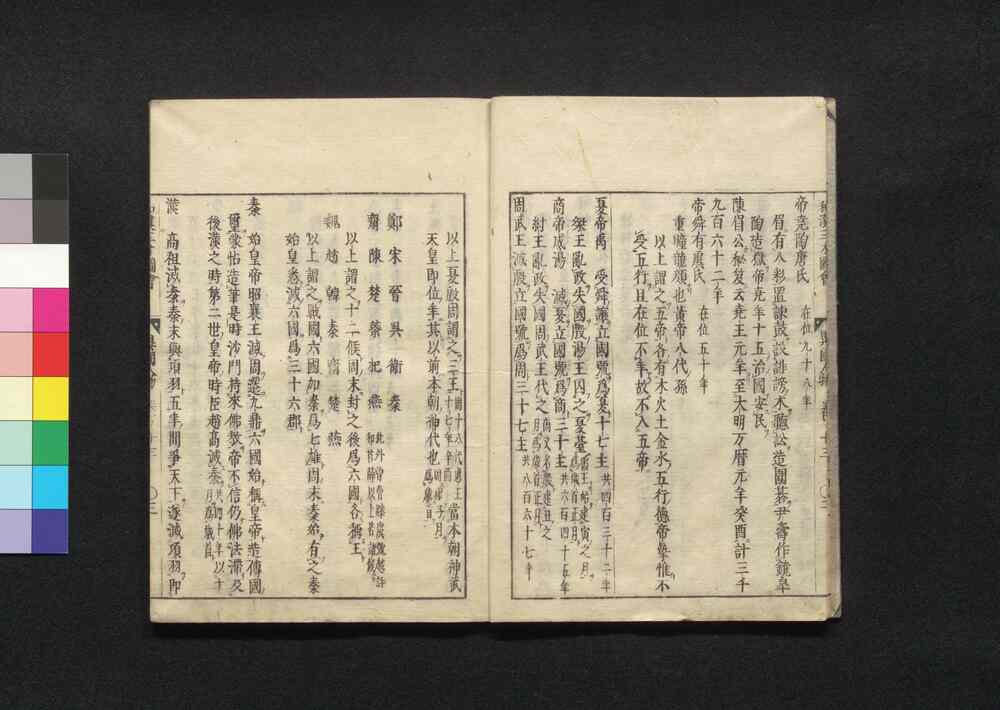 和漢三才圖會
帝堯陶唐氏　在位九十八年
眉有八彩置諫鼓設誹謗木聽訟造圍棊尹壽作鏡皐
陶造獄帝堯年十五治國安民
陳眉公秘笈云堯王元年至大明万暦元年癸酉計三千
九百六十二年
帝舜有虞氏　在位五十年
重瞳龍顔也黃帝八代孫
以上謂之五帝各有木火土金水五行德帝摯惟不
受五行且在位不年故不入五帝
夏帝禹　受舜讓立國號爲夏十七主共四百三十二年
桀王亂政失國殷湯王囚之夏臺
商帝成湯　滅夏立國號爲商三十主共六百四十五年
紂王亂政失國周武王代之
周武王滅殷立國號爲周三十七主共八百六十七年
以上夏殷周謂之三王周十八代惠王當本朝神武
天皇即位年其以前本朝神代也
鄭　宋　晉　吳　衛　秦
齊　陳　楚　蔡　杞　燕
以上謂之十二侯周末封之後爲六國各稱王
魏　趙　韓　秦　齊　楚　燕
以上謂之戰國六國加秦爲七雄周末秦始有之秦
始皇悉滅六國爲三十六郡
秦　始皇帝昭襄王滅周遷九鼎六國始稱皇帝造傳國
璽蒙恬造筆是時沙門持來佛敎帝不信仍佛法滞及
後漢之時第二世皇帝時臣趙高滅秦共四十年以十月爲歳首
漢　高祖滅秦秦末與項羽五年間爭天下遂滅項羽即
和漢三才圖會